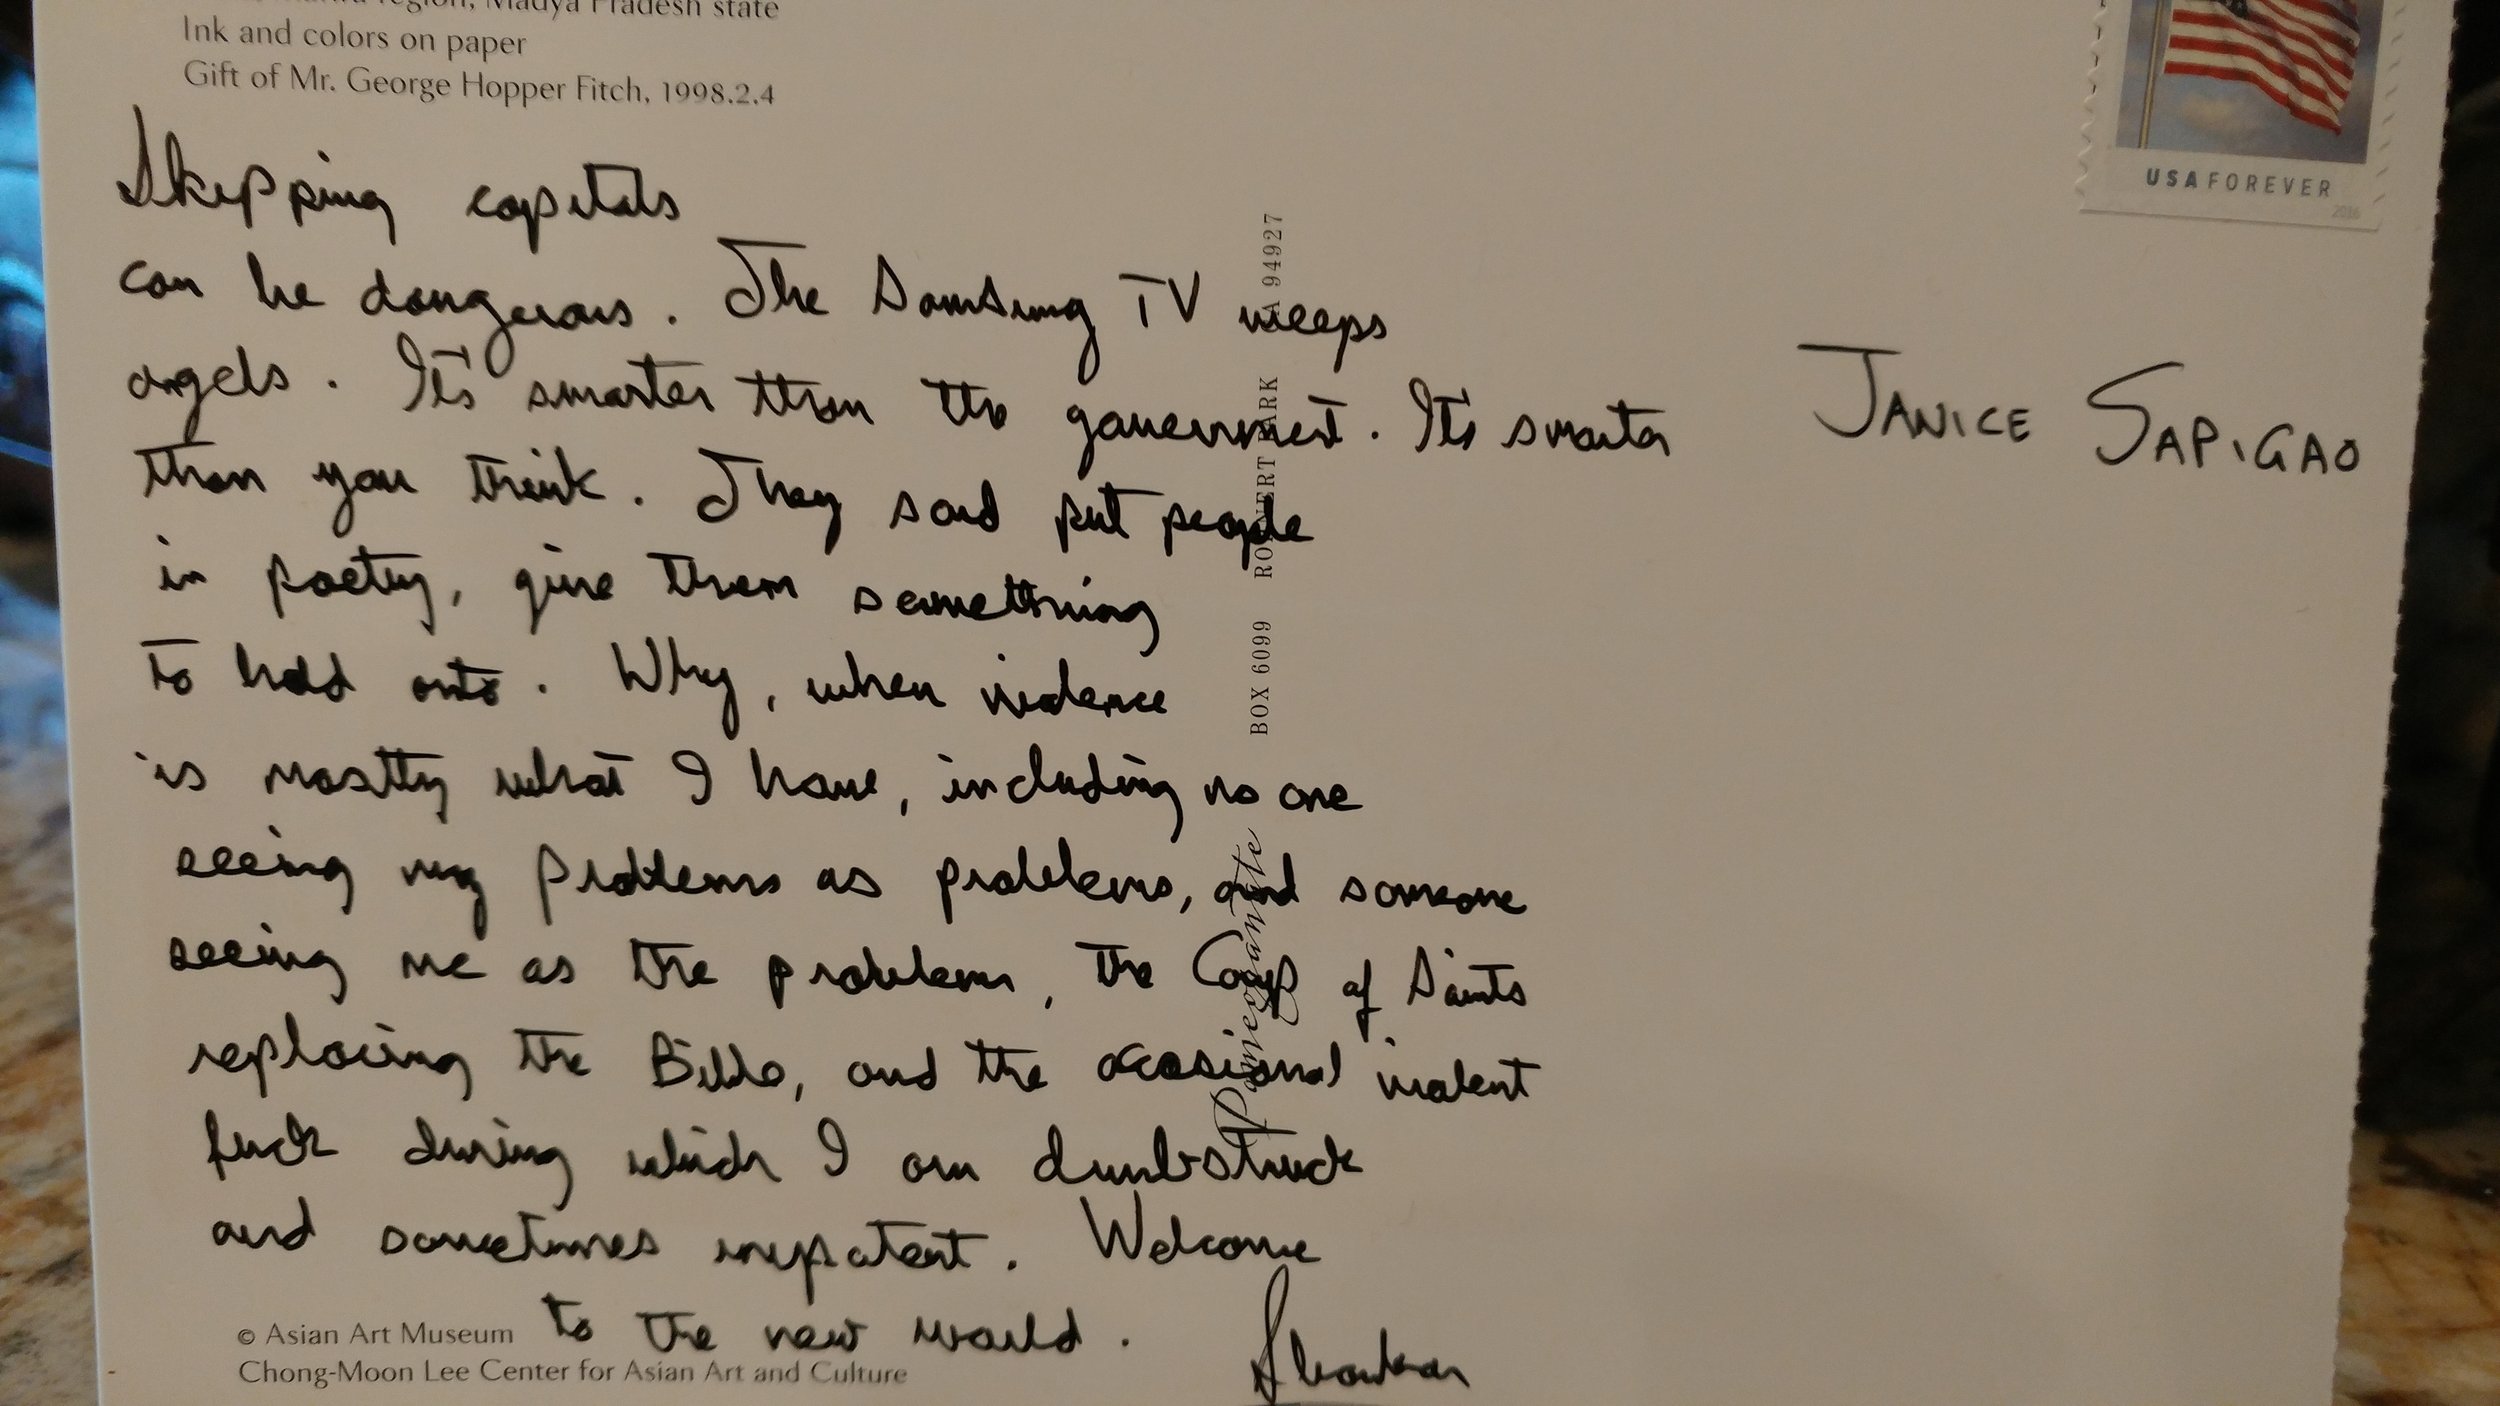 region, Madya Pradesh state
Ink and colors on paper
Gift of Mr. George Hopper Fitch, 1998.2.4
USA FOREVER
2016
Skipping capitals
can be dangerous. The Samsung TV weeps
angels. It's smarter than the government. It's smarter
than you think. They said put people
in poetry, give them something
to hold onto. Why, when violence
is mostly what I have, including no one
seeing my problems as problems, and someone
seeing me as the problems, the Coup of Saints
replacing the Bills, and the occasional violent
fuck during which I am dumbstruck
and sometimes impatient. Welcome
to the new world.
JANICE SAPIGAO
BOX 6099 ROHNERT PARK CA 94927
Pomegranate
© Asian Art Museum
Chong-Moon Lee Center for Asian Art and Culture